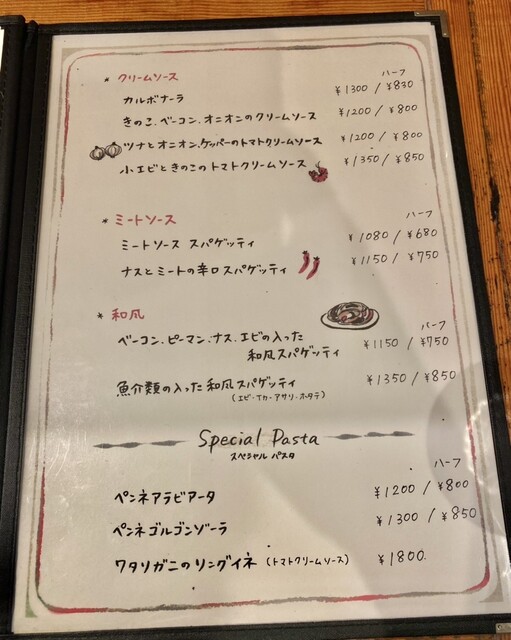 * クリームソース
ハーフ
カルボナーラ ¥1300 / ¥830
きのこ、ベーコン、オニオンのクリームソース ¥1200 / ¥800
ツナとオニオン、ケッパーのトマトクリームソース ¥1200 / ¥800
小エビときのこのトマトクリームソース ¥1350 / ¥850
* ミートソース
ハーフ
ミートソース スパゲッティ ¥1080 / ¥680
ナスとミートの辛口スパゲッティ ¥1150 / ¥750
* 和風
ハーフ
ベーコン、ピーマン、ナス、エビの入った
和風スパゲッティ ¥1150 / ¥750
魚介類の入った和風スパゲッティ ¥1350 / ¥850
(エビ・イカ・アサリ・ホタテ)
Special Pasta
スペシャル パスタ
ハーフ
ペンネアラビアータ ¥1200 / ¥800
ペンネゴルゴンゾーラ ¥1300 / ¥850
ワタリガニのリングイネ (トマトクリームソース) ¥1800.